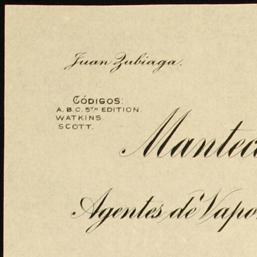 Juan Zubiaga.
CÓDIGOS:
A.B.C. 5TH EDITION.
WATKINS.
SCOTT.
Mantec
Agentes de Vapo